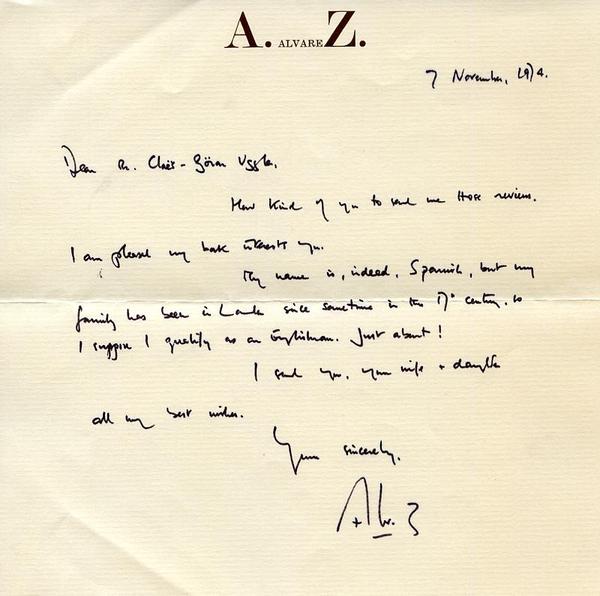 A. ALVAREZ.
7 November, 1974.
Dear Mr. Claës-Göran Uggla,
How kind of you to send me those reviews.
I am pleased my book interests you.
My name is, indeed, Spanish, but my
family has been in London since sometime in the 17c century, so
I suppose I qualify as an Englishman. Just about!
I send you, your wife + daughter
all my best wishes.
Yours sincerely,